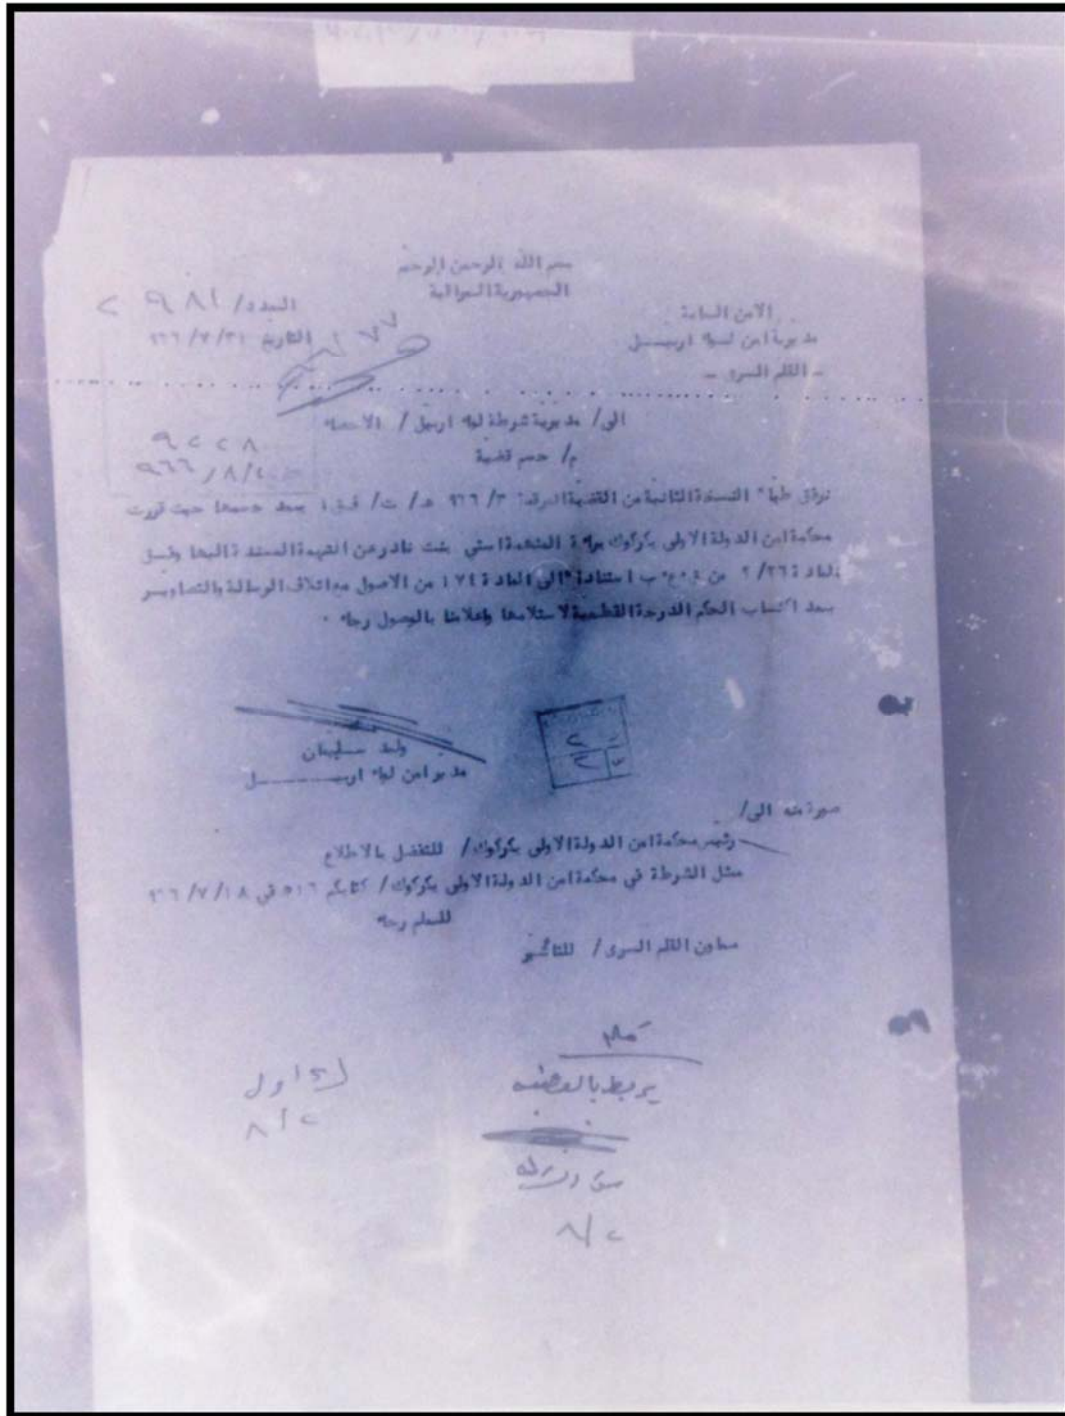 بسم الله الرحمن الرحيم
الجمهورية العراقية
الامن العامة
مديرية امن لواء اربيــل
ـ القلم السرى ـ
العدد/ ٩٨١ ٢
التاريخ ٩٦٦/٧/٣١
الى/ مديرية شرطة لواء اربيل / الاحصاء
م/ حسم قضية
٩٢٢٨
٩٦٦/٨/
نرفق طيا" النسخة الثانية من القضية المرقمة ٣/ ٩٦٦ بعد حسمها حيث قررت
محكمة امن الدولة الاولى بكركوك براءة المتهمة استي بنت نادر عن التهمة المسندة اليها وفــق
المادة ٢/٢٦ من ب استنادا" الى المادة ١٧٤ من الاصول مع اتلاف الرسالة والتصاويــر
بعد اكتساب الحكم الدرجة القطعية لاستلامها واعلامنا بالوصول رجاء ٠
وليد سليمان
مدير امن لواء اربـــــل
صورة منه الى/
رئيس محكمة امن الدولة الاولى بكركوك/ للتفضل بالاطلاع
ممثل الشرطة في محكمة امن الدولة الاولى بكركوك/ كتابكم ٥١٦ في ٩٦٦/٧/١٨
للعلم رجاء
معاون القلم السرى/ للتأشير
يربط بالقضية
٨/٢
٨/٢